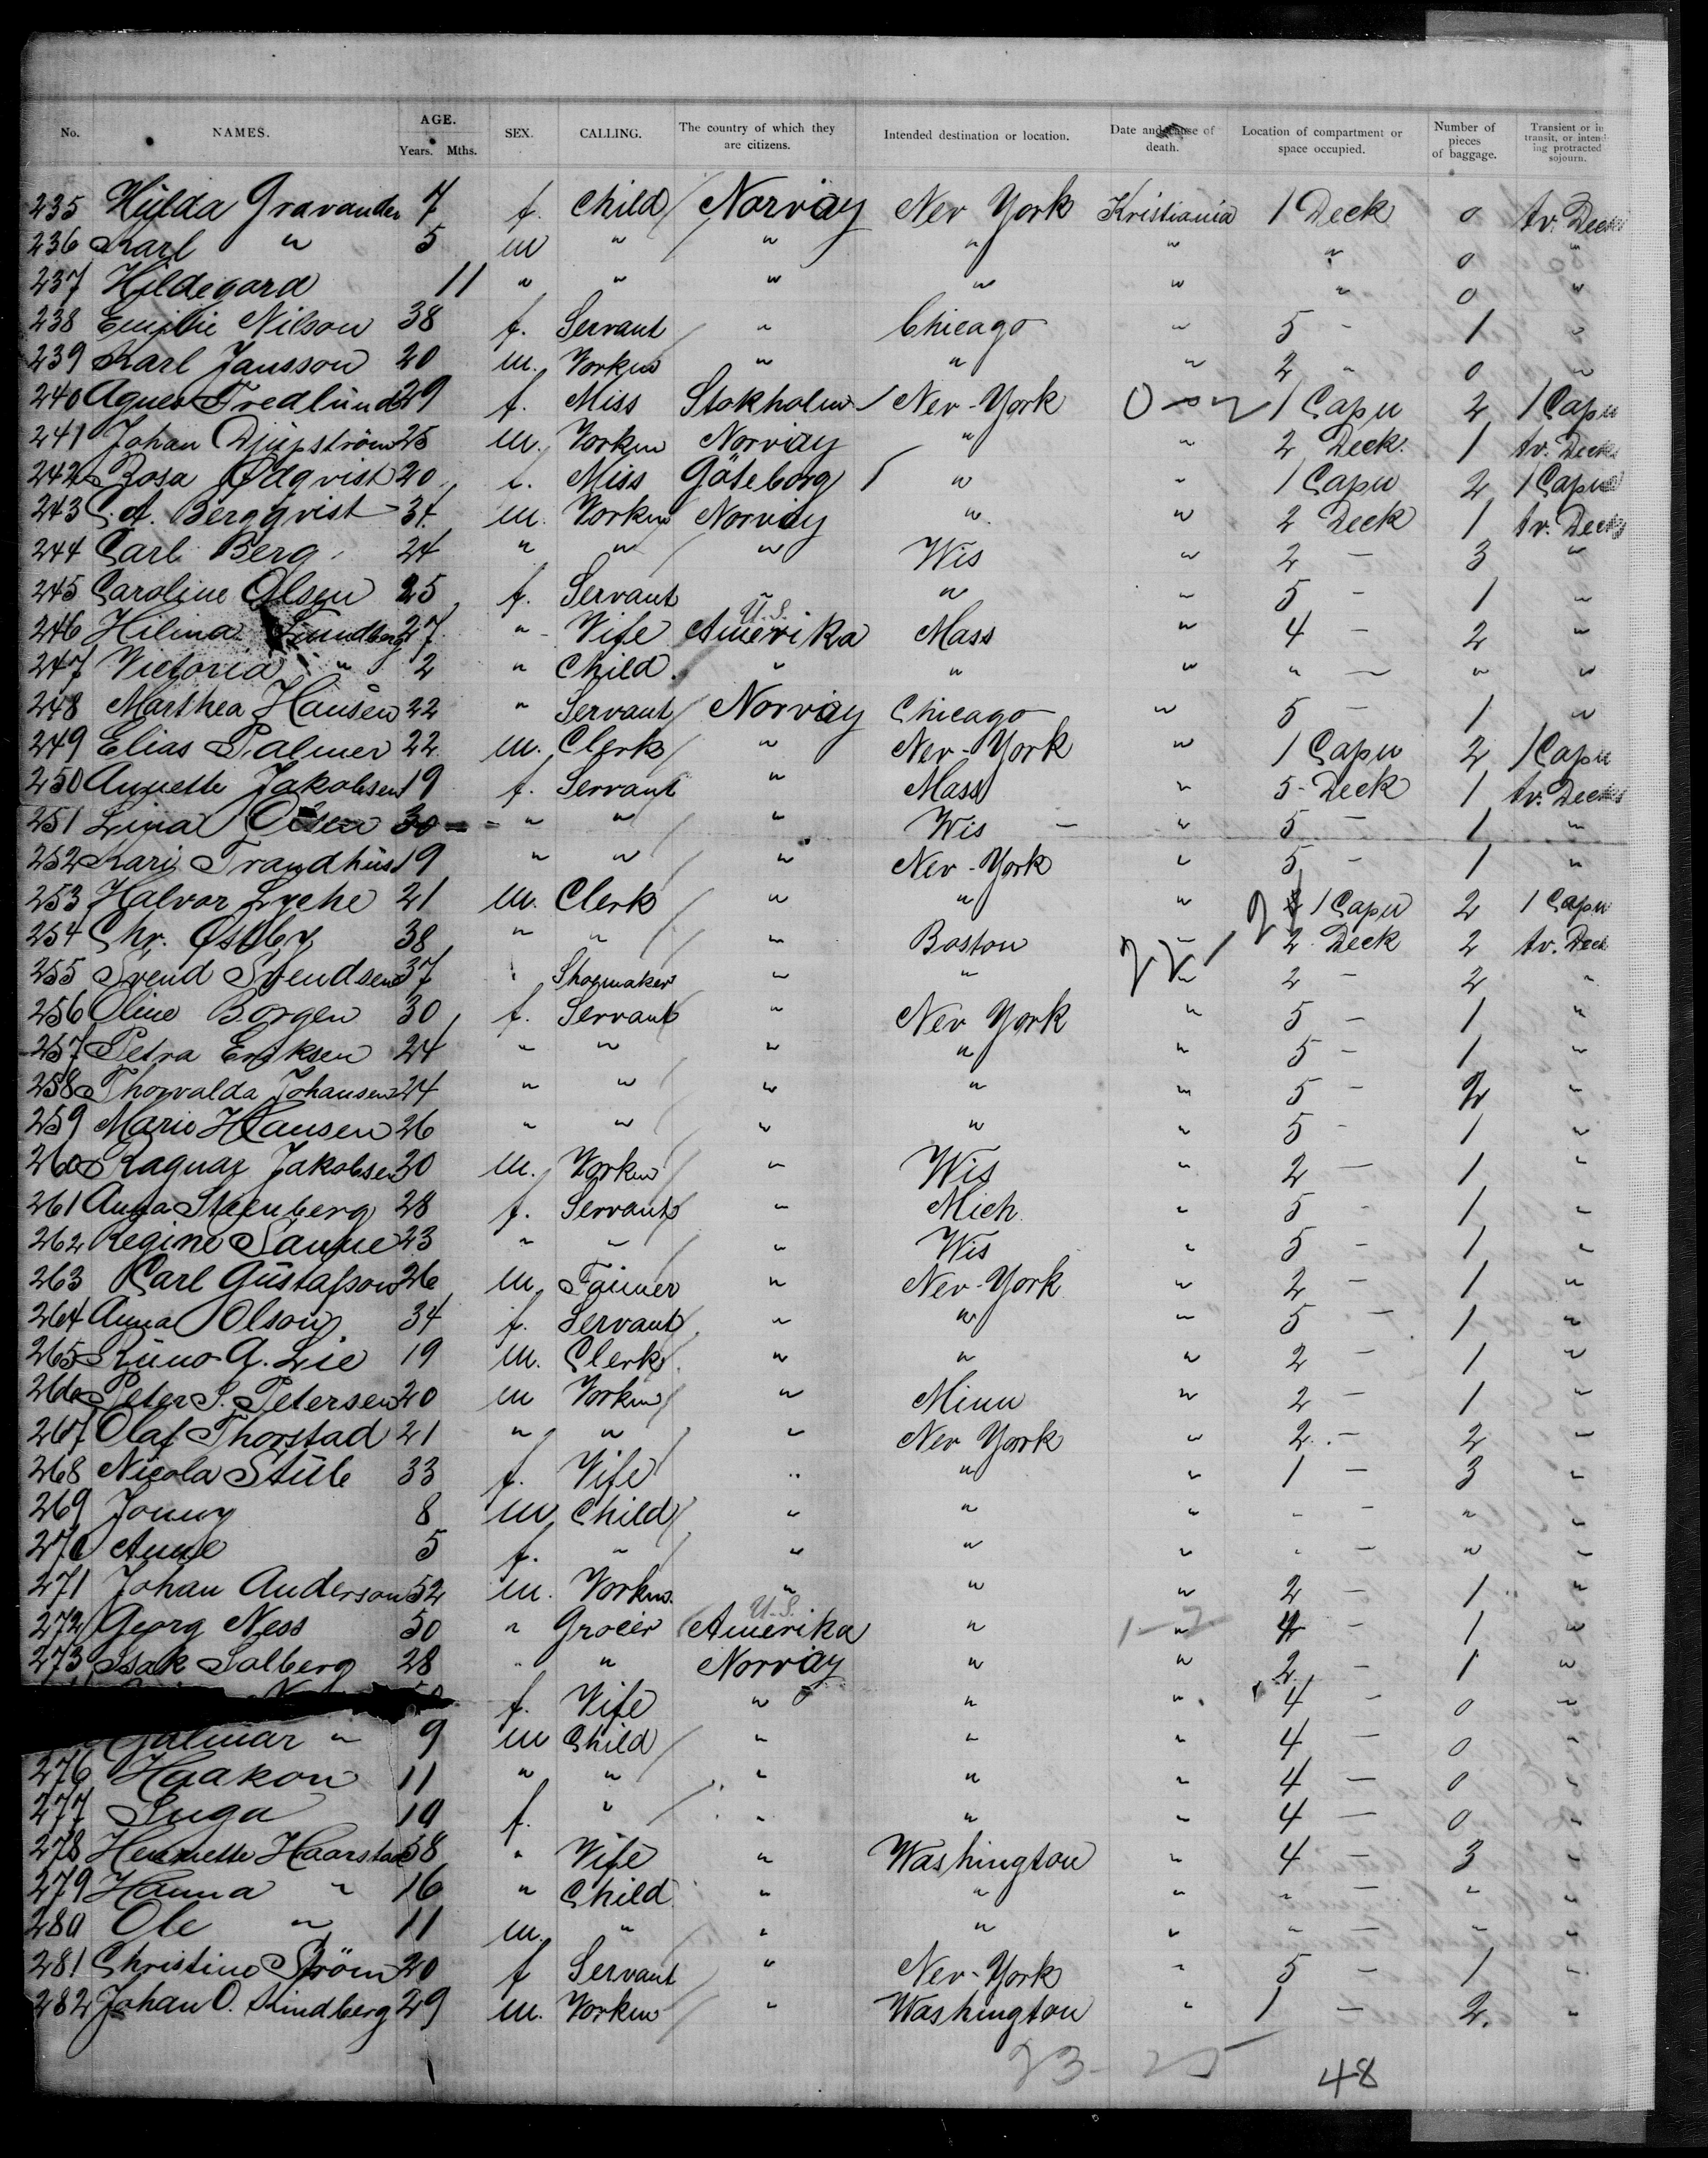 No. NAMES. AGE. Years. Mths. SEX. CALLING. The country of which they are citizens. Intended destination or location. Date and cause of death. Location of compartment or space occupied. Number of pieces of baggage. Transient or in transit, or intending protracted sojourn.
235 Hilda Gravander 7 f. Child Norway New York Kristiania 1 Deck 0 tv. Decks
236 Karl " 5 m " " " " " 0 "
237 Hildegard 11 " " " " " " 0 "
238 Emilie Nilson 38 f. Servant " Chicago " 5 - 1 "
239 Karl Jansson 20 m. Workm " " " 2 " 0 "
240 Agnes Fredlund 29 f. Miss Stokholm New-York 1 Capu 2 1 Capu
241 Johan Djupström 25 m. Workm Norway " " 2 Deck. 1 tv. Decks
242 Rosa Ödqvist 20 f. Miss Göteborg " " 1 Capu 2 1 Capu
243 C. A. Bergqvist 34 m. Workm Norway " " 2 Deck 1 tv. Decks
244 Carl Berg 24 " " " Wis " 2 - 3 "
245 Caroline Olsen 25 f. Servant " " " 5 - 1 "
246 Hilma Lundberg 27 " Wife U.S. Amerika Mass " 4 - 2 "
247 Victoria " 2 " Child " " " " - " "
248 Marthea Hansen 22 " Servant Norway Chicago " 5 - 1 "
249 Elias Palmer 22 m. Clerk " New-York " 1 Capu 2 1 Capu
250 Annette Jakobsen 19 f. Servant " Mass " 5 - Deck 1 tv. Decks
251 Lina Olsen 30 " " " Wis " 5 - 1 "
252 Kari Trandhus 19 " " " New-York " 5 - 1 "
253 Halvor Lyche 21 m. Clerk " " " 1 Capu 2 1 Capu
254 Chr. Østby 38 " " " Boston " 2 Deck 2 tv. Deck
255 Svend Svendsen 37 Shoemaker " " " 2 - 2 "
256 Oline Borgen 30 f. Servant " New York " 5 - 1 "
257 Petra Eriksen 24 " " " " " 5 - 1 "
258 Thorvalda Johansen 24 " " " " " 5 - 2 "
259 Marie Hansen 26 " " " " " 5 - 1 "
260 Ragnar Jakobsen 20 m. Workm " Wis " 2 - 1 "
261 Anna Steenberg 28 f. Servant " Mich. " 5 - 1 "
262 Regine Sanne 23 " " " Wis " 5 - 1 "
263 Carl Gustafson 26 m. Farmer " New-York " 2 - 1 "
264 Anna Olson 34 f. Servant " " " 5 - 1 "
265 G. Lie 19 m. Clerk " " " 2 - 1 "
266 Peter S. Petersen 20 m Workm " Minn " 2 - 1 "
267 Olaf Thorstad 21 " " " New York " 2 - 2 "
268 Nicola 33 f. Wife " " " 1 - 3 "
269 Jonny 8 m Child " " " " - " "
270 Anne 5 f. " " " " " - " "
271 Johan Anderson 52 m. Workm. " " " 2 - 1 "
272 Georg Ness 50 " Grocer U.S. Amerika " " 4 - 1 "
273 Isak Solberg 28 " " Norway " " 2 - 1 "
f. Wife " " " 4 - 0 "
Hjalmar " 9 m Child " " " 4 - 0 "
276 Haakon 11 " " " " " 4 - 0 "
277 Inga 10 f. " " " " 4 - 0 "
278 Henriette Haarstad 38 " Wife " Washington " 4 - 3 "
279 Hanna " 16 " Child " " " " - " "
280 Ole " 11 m. " " " " " - " "
281 Christine Ström 20 f Servant " New-York " 5 - 1 "
282 Johan O. Lindberg 29 m. Workm " Washington " 1 - 2. "
23 - 25 48